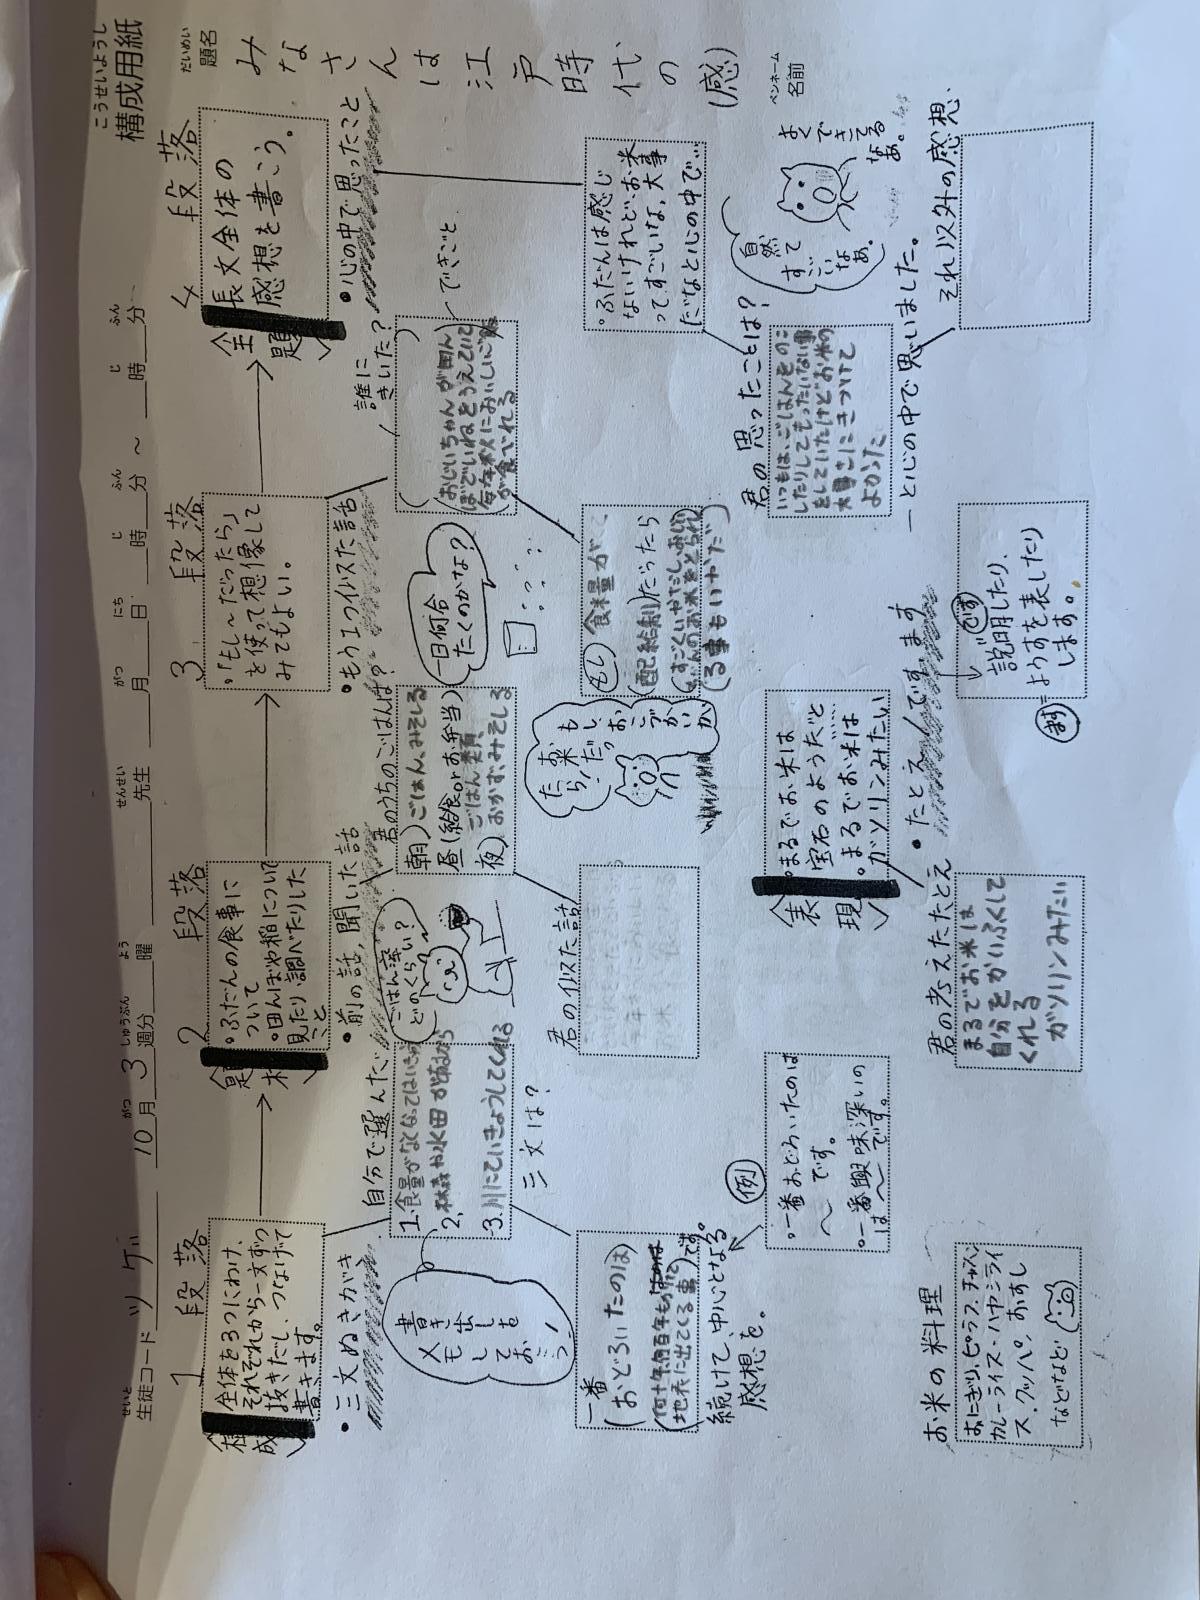 こうせいようし
構成用紙
だいめい
題名
みなさんは江戸時代の(感)
ペンネーム
名前
せいと
生徒コード ツゲ 10月 3週分 曜 先生 月 日 時 分 ～ 時 分
がつ しゅうぶん よう せんせい がつ にち じ ふん じ ふん
1段落
〈構成〉
全体を3つにわけ、
それぞれから一文ずつ
抜きだし、つなげて
書きます。
・三文ぬきがき
自分で選んだ
1.食量がなくなってはいけない
2.森林や水田があるから
3.川にていきょうしてくれる
三文は?
書き出しを
メモして
おこう!
一番
(おどろいたのは)
(何十年何百年もかけて
地表に出てくる事)です。
続けて、中心となる
感想を。
例
・一番おどろいたのは
～です。
・一番興味深いの
は～です。
お米の料理
おにぎり、ピラフ、チャハン
カレーライス・ハヤシライ
ス、クッパ、おすし
などなど
2段落
〈題材〉
・ふだんの食事に
ついて
・田んぼや稲について
見たり、調べたりした
こと
・前の話,聞いた話
君のうちのごはんは?
ごはん落
どのくらい?
朝)ごはん、みそしる
昼(給食orお弁当)
ごはん、めん類
夜)おかず、みそしる
君の似た話
一日何合
たくのかな?
もし、
お米だっ
たら!
おこづかいが
〈表現〉
・まるでお米は
宝石のようだと
・まるでお米は
ガソリンみたい
・たとえ/です ます
君の考えたたとえ
まるでお米は
自分をかいふくして
くれる
ガソリンみたい
です
説明したり、
ます=ようすを表したり
します。
3段落
・「もし～だったら」
を使って想像して
みてもよい。
・もう1つ似た話
誰に
きいた?
できごと
(おじいちゃんが田ん
ぼでいねをうえていて
毎年秋においしいご飯
が食べれる
もし
食料量が
(配給制)だったら
(すごくいやだし、おじい
ちゃんのお米をとられ
る事もいやだ)
4段落
〈全題〉
長文全体の
感想を書こう。
・心の中で思ったこと
・ふだんは感じ
ないけれど、お米
ってすごいな,大事
だなと心の中で…
君の思ったことは?
いつもは、ごはんをのこ
したりしてもったいない事
をしていたけどお米の
大事さにきづけて
よかった
自然
って
すごい
なあ。
よく
できてる
なあ。
―と心の中で思いました。
それ以外の感想、